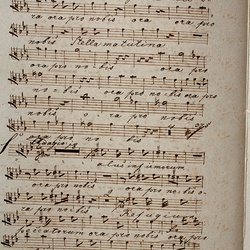 ra ora pro nobis ora ora pro
nobis Stella matutina
ora pro nobis ora pro
nobis ora pro nobis ora pro
nobis ora pro nobis
ora pro nobis
Salus infirmorum
ora pro nobis ora pro nobis o-
ra pro nobis Refugium
peccatorum ora pro nobis ora pro